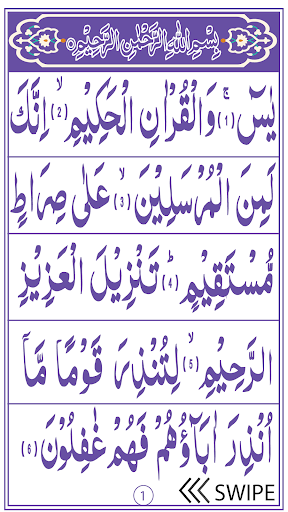 بِسْمِ اللهِ الرَّحْمٰنِ الرَّحِيْمِ
يٰسٓ ۚ ﴿1﴾ وَ الْقُرْاٰنِ الْحَكِيْمِ ۙ ﴿2﴾ اِنَّكَ
لَمِنَ الْمُرْسَلِيْنَ ۙ ﴿3﴾ عَلٰى صِرَاطٍ
مُّسْتَقِيْمٍ ؕ ﴿4﴾ تَنْزِيْلَ الْعَزِيْزِ
الرَّحِيْمِ ۙ ﴿5﴾ لِتُنْذِرَ قَوْمًا مَّاۤ
اُنْذِرَ اٰبَآؤُهُمْ فَهُمْ غٰفِلُوْنَ ﴿6﴾
1
<<< SWIPE